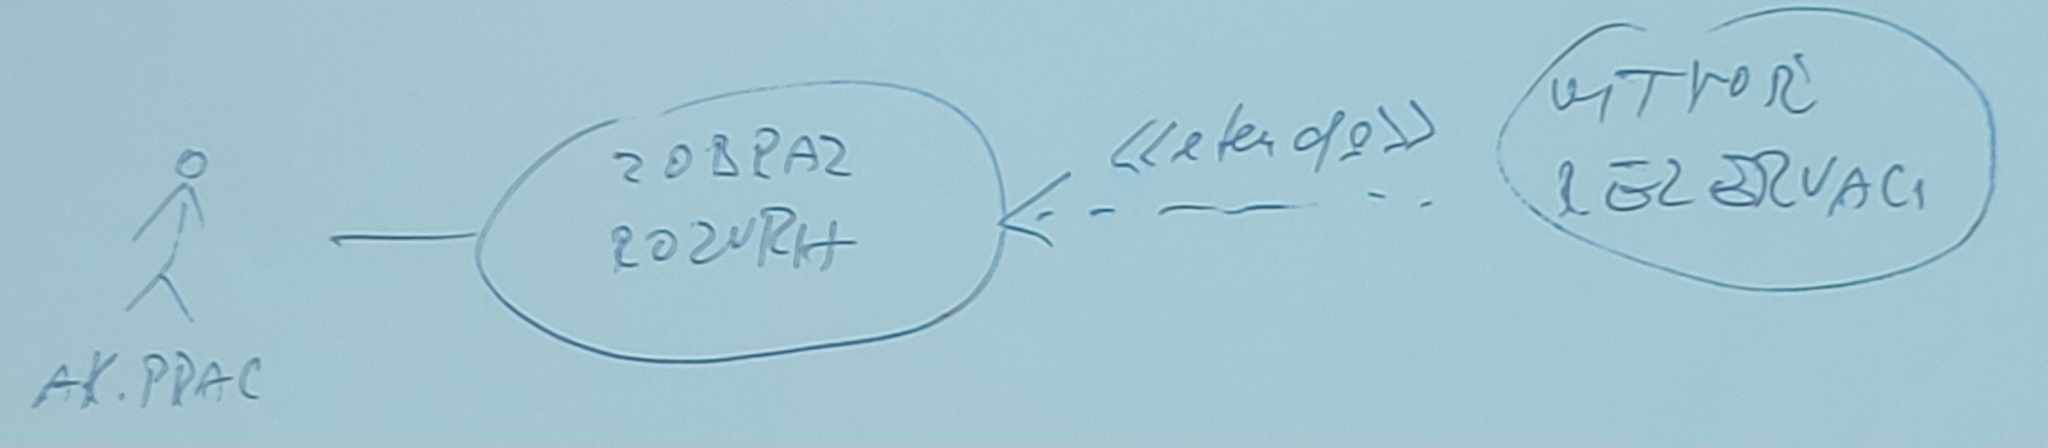 AK.PRAC
ZOBRAZ
ROZVRH
<<extends>>
VYTVOŘ
REZERVACI